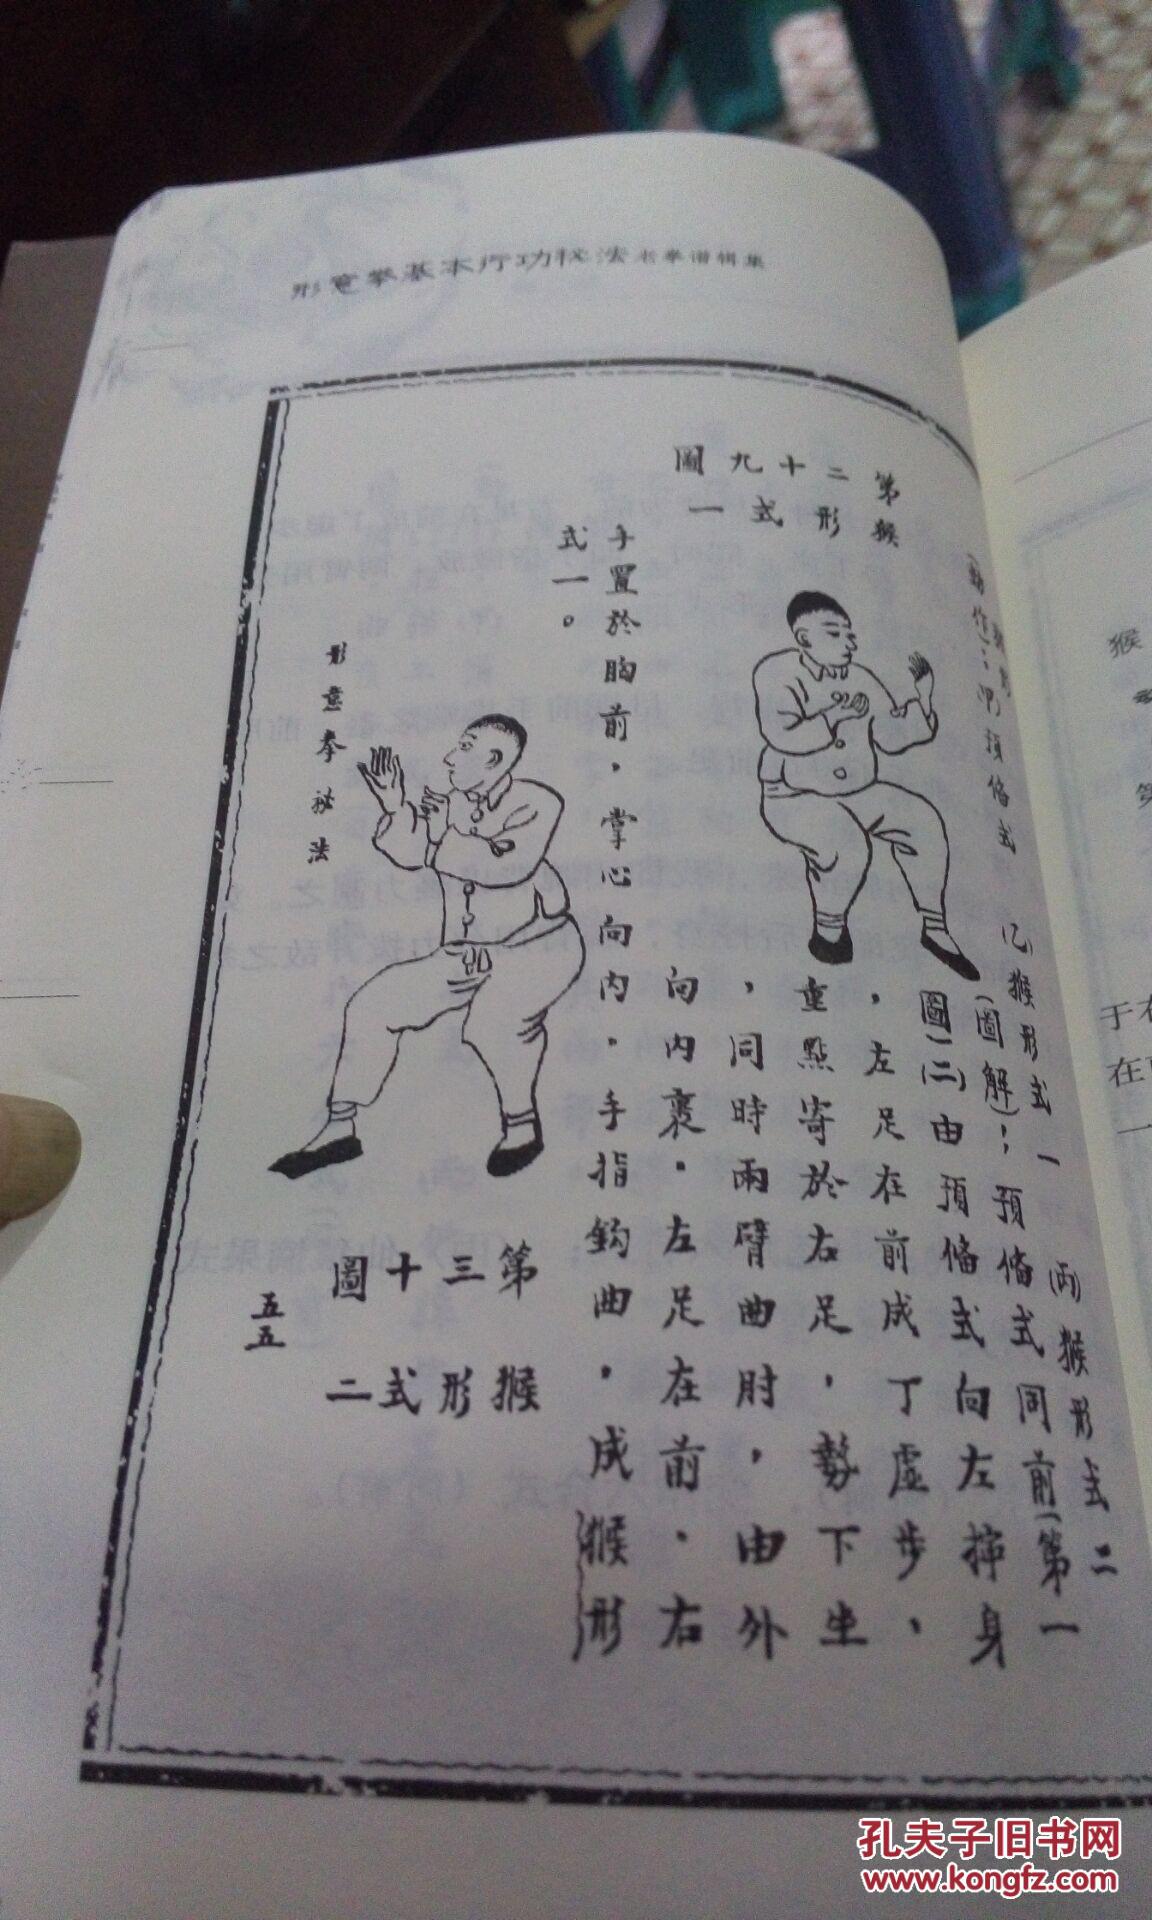 形意拳基本行功秘法老拳谱辑集
(乙)猴形式一 (丙)猴形式二
(圖解)：預備式同前(第一
圖)(二)由預備式向左擰身
，左足在前成丁虛步、
重點寄於右足，勢下坐
，同時兩臂曲肘，由外
向內裹。左足在前。右
手置於胸前，掌心向內。手指鈎曲。成猴形
式一。
第二十九圖
猴形式一
第三十圖
猴形式二
形意拳祕法
五五
猴
于
在
一
孔夫子旧书网
www.kongfz.com